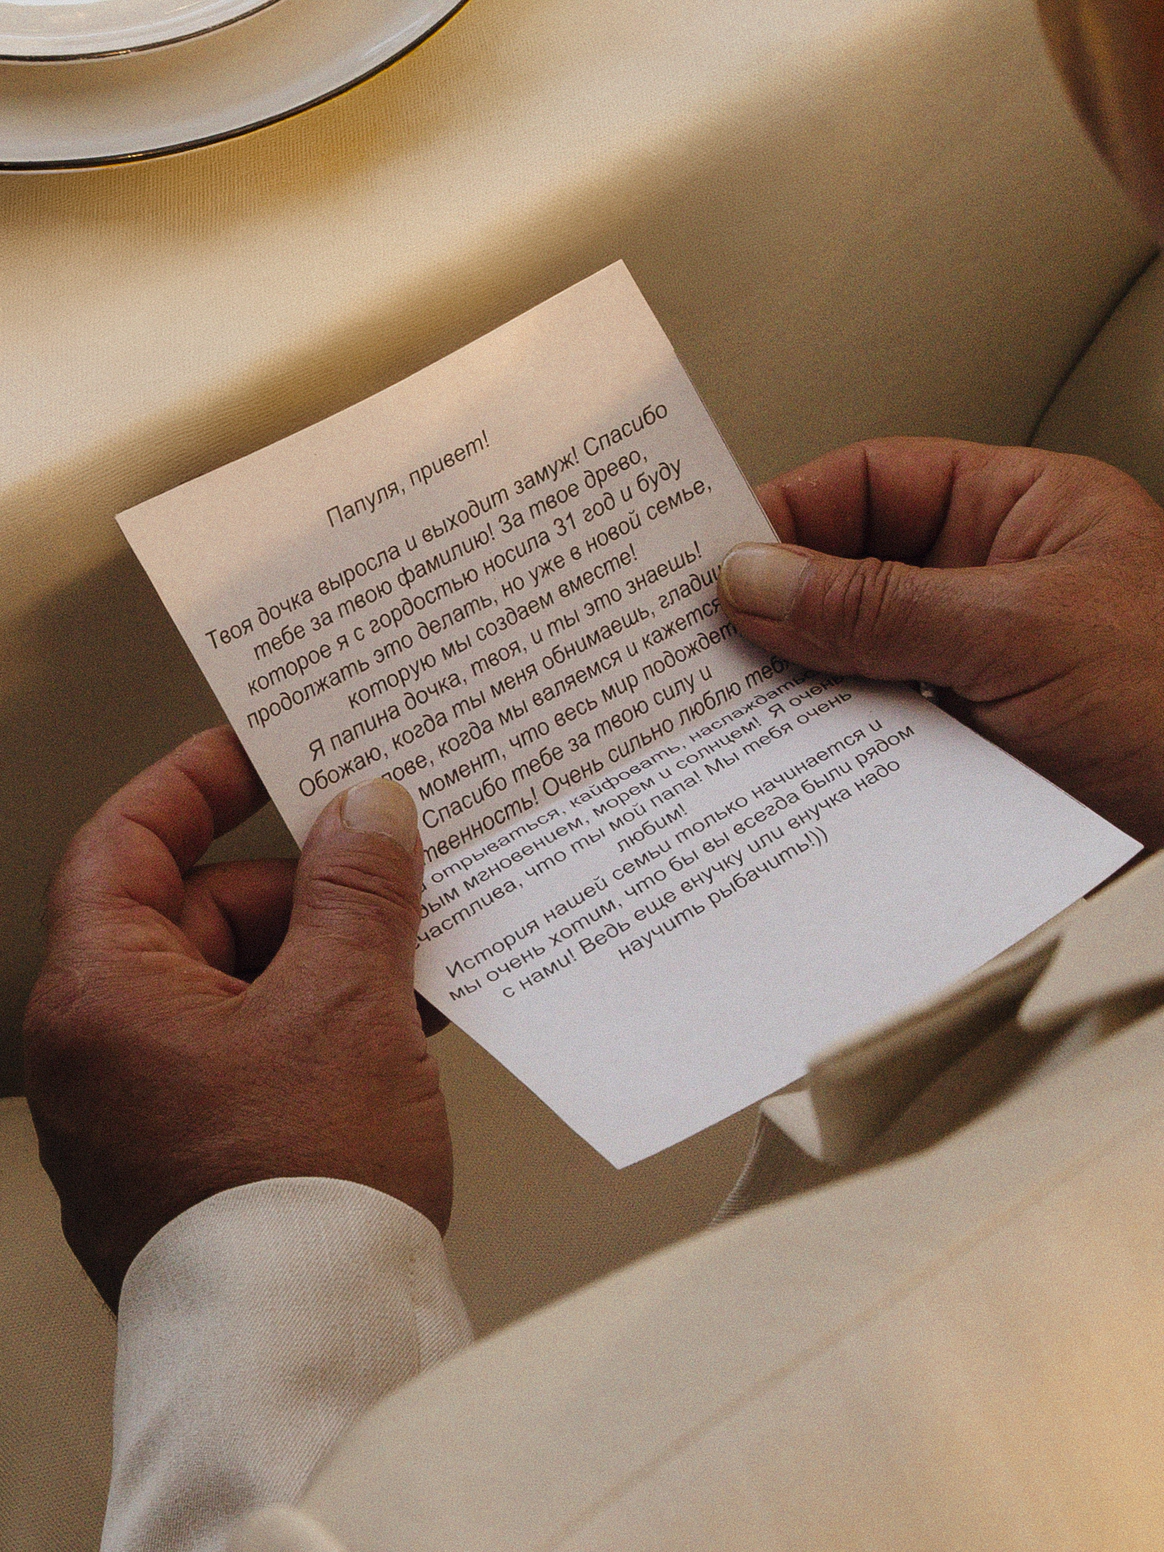 Папуля, привет!
Твоя дочка выросла и выходит замуж! Спасибо
тебе за твою фамилию! За твое древо,
которое я с гордостью носила 31 год и буду
продолжать это делать, но уже в новой семье,
которую мы создаем вместе!
Я папина дочка, твоя, и ты это знаешь!
Обожаю, когда ты меня обнимаешь,
когда мы валяемся и кажется
момент, что весь мир подождет
Спасибо тебе за твою силу и
Очень сильно люблю
отрываться, кайфовать,
мгновением, морем и солнцем! Я очень
что ты мой папа! Мы тебя очень
любим!
История нашей семьи только начинается и
мы очень хотим, что бы вы всегда были рядом
с нами! Ведь еще внучку или внучка надо
научить рыбачить!))